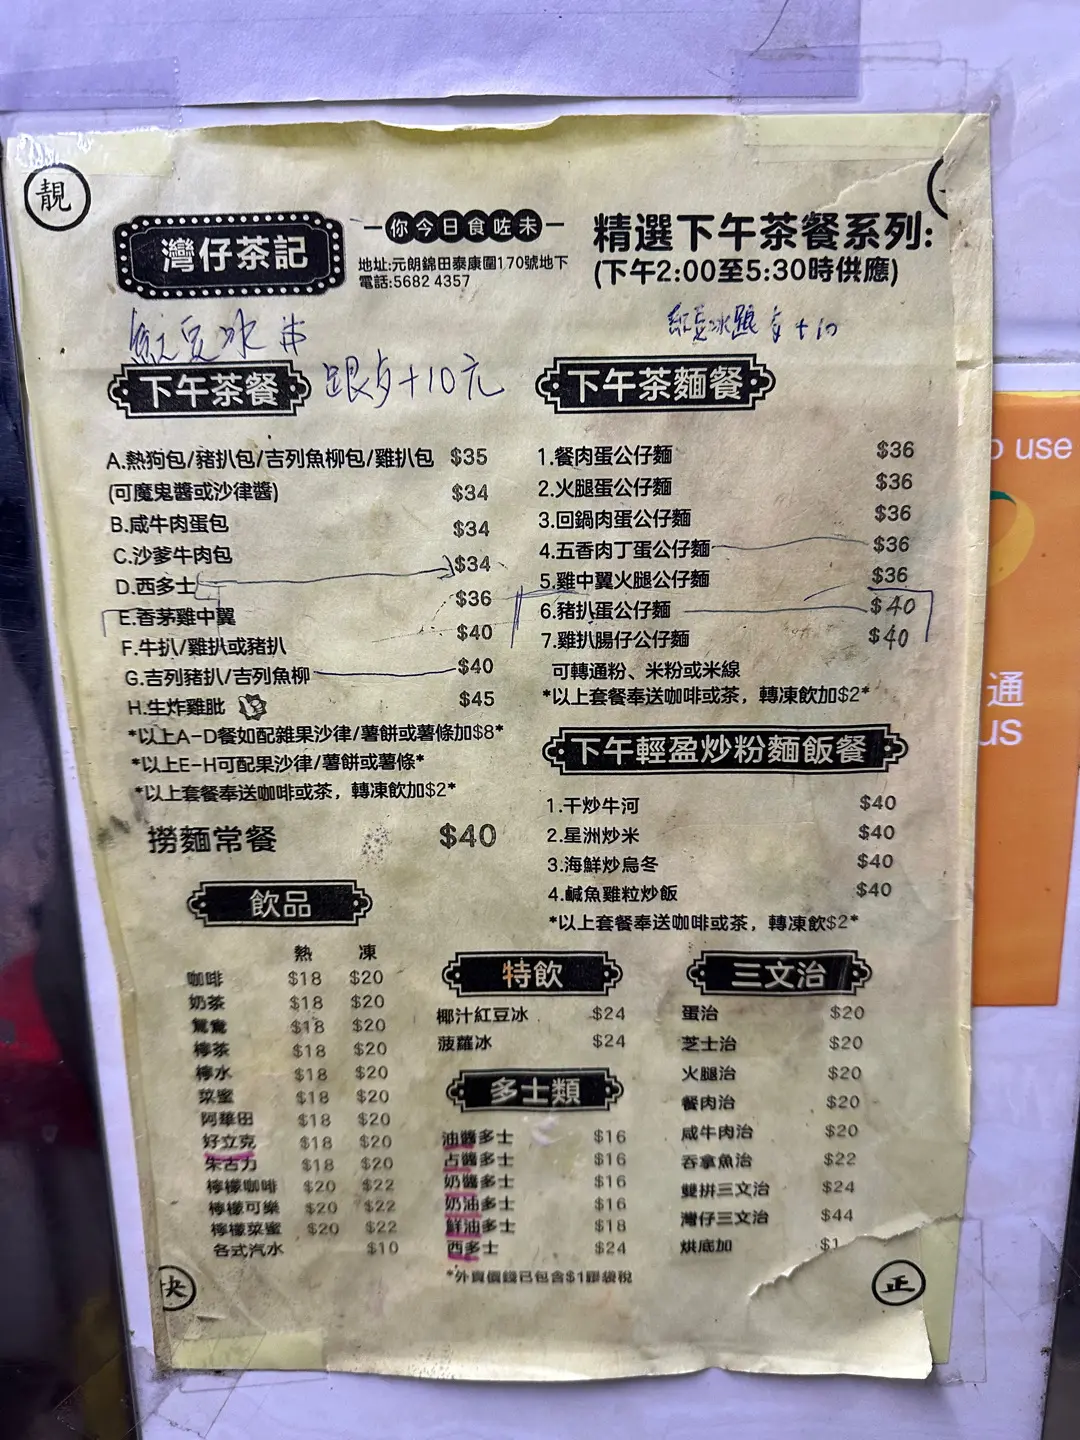 靚
灣仔茶記
你今日食咗未
地址:元朗錦田泰康圍170號地下
電話:5682 4357
精選下午茶餐系列:
(下午2:00至5:30時供應)
紅豆冰
跟+10元
紅豆冰跟 +10
下午茶餐
A.熱狗包/豬扒包/吉列魚柳包/雞扒包 $35
(可魔鬼醬或沙律醬) $34
B.咸牛肉蛋包 $34
C.沙爹牛肉包 $34
D.西多士 $36
E.香茅雞中翼 $40
F.牛扒/雞扒或豬扒 $40
G.吉列豬扒/吉列魚柳 $45
H.生炸雞肶
*以上A-D餐如配雜果沙律/薯餅或薯條加$8*
*以上E-H可配果沙律/薯餅或薯條*
*以上套餐奉送咖啡或茶，轉凍飲加$2*
撈麵常餐 $40
下午茶麵餐
1.餐肉蛋公仔麵 $36
2.火腿蛋公仔麵 $36
3.回鍋肉蛋公仔麵 $36
4.五香肉丁蛋公仔麵 $36
5.雞中翼火腿公仔麵 $36
6.豬扒蛋公仔麵 $40
7.雞扒腸仔公仔麵 $40
可轉通粉、米粉或米線
*以上套餐奉送咖啡或茶，轉凍飲加$2*
下午輕盈炒粉麵飯餐
1.干炒牛河 $40
2.星洲炒米 $40
3.海鮮炒烏冬 $40
4.鹹魚雞粒炒飯 $40
*以上套餐奉送咖啡或茶，轉凍飲$2*
飲品
熱 凍
咖啡 $18 $20
奶茶 $18 $20
鴛鴦 $18 $20
檸茶 $18 $20
檸水 $18 $20
菜蜜 $18 $20
阿華田 $18 $20
好立克 $18 $20
朱古力 $18 $20
檸檬咖啡 $20 $22
檸檬可樂 $20 $22
檸檬菜蜜 $20 $22
各式汽水 $10
特飲
椰汁紅豆冰 $24
菠蘿冰 $24
多士類
油醬多士 $16
占醬多士 $16
奶醬多士 $16
奶油多士 $16
鮮油多士 $18
西多士 $24
*外賣價錢已包含$1膠袋稅
三文治
蛋治 $20
芝士治 $20
火腿治 $20
餐肉治 $20
咸牛肉治 $20
吞拿魚治 $22
雙拼三文治 $24
灣仔三文治 $44
烘底加 $1
正
use
通
us